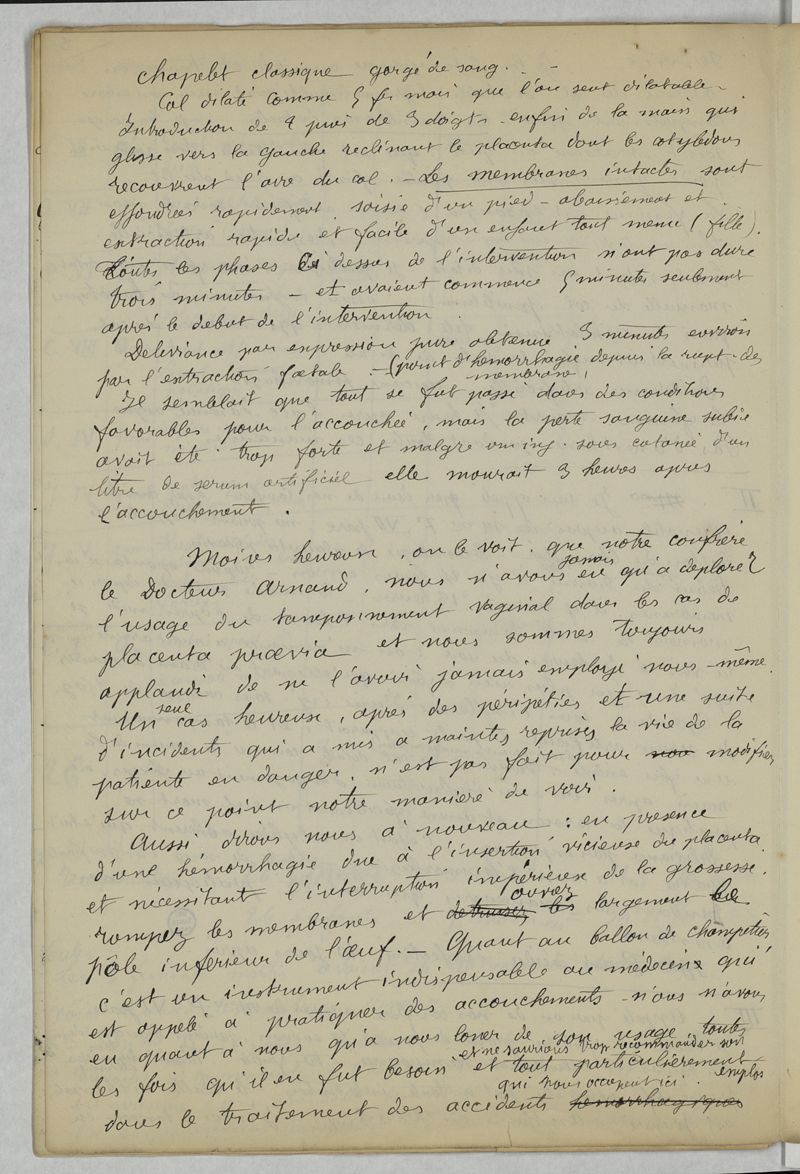 chapelet classique gorgé de sang. -
Col dilaté comme 5 fr mais que l'on sent dilatable.
Introduction de 2 puis de 3 doigts enfin de la main qui
glisse vers la gauche reclinant le placenta dont les cotylédons
recouvrent l'aire du col. - Les membranes intactes sont
effondrées rapidement, saisie d'un pied - abaissement et
extraction rapide et facile d'un enfant tout menu (fille).
Toutes les phases ci dessus de l'intervention n'ont pas duré
trois minutes - et avaient commencé 5 minutes seulement
après le debut de l'intervention.
Delivrance par expression pure obtenue 3 minutes environ
par l'extraction fœtale. - (point d'hémorrhagie depuis la rupt. des
membranes)
Il semblait que tout se fut passé dans des conditions
favorables pour l'accouchée, mais la perte sanguine subie
avait été trop forte et malgré une inj. sous cutanée d'un
litre de serum artificiel elle mourait 3 heures après
l'accouchement.
Moins heureux, on le voit, que notre confrère
jamais
le Docteur Arnaud, nous n'avons eu qu'à déplorer
l'usage du tamponnement vaginal dans les cas de
placenta prœvia et nous sommes toujours
applaudi de ne l'avoir jamais employé nous-même.
seul
Un cas heureux, après des péripéties et une suite
d'incidents qui a mis a maintes reprises la vie de la
patiente en danger, n'est pas fait pour modifier
sur ce point notre manière de voir.
Aussi dirons nous à nouveau : en presence
d'une hémorrhagie due à l'insertion vicieuse du placenta
et nécessitant l'interruption impérieuse de la grossesse,
ouvrez
rompez les membranes et les largement le
pôle inférieur de l'œuf. - Quant au ballon de Champetier
c'est un instrument indispensable au médecin qui
est appelé à pratiquer des accouchements - nous n'avons
eu quant à nous qu'à nous louer de son usage toutes
et ne saurions trop recommander son
les fois qu'il en fut besoin et tout particulièrement
qui nous occupent ici. emploi
dans le traitement des accidents hemorrhagiques